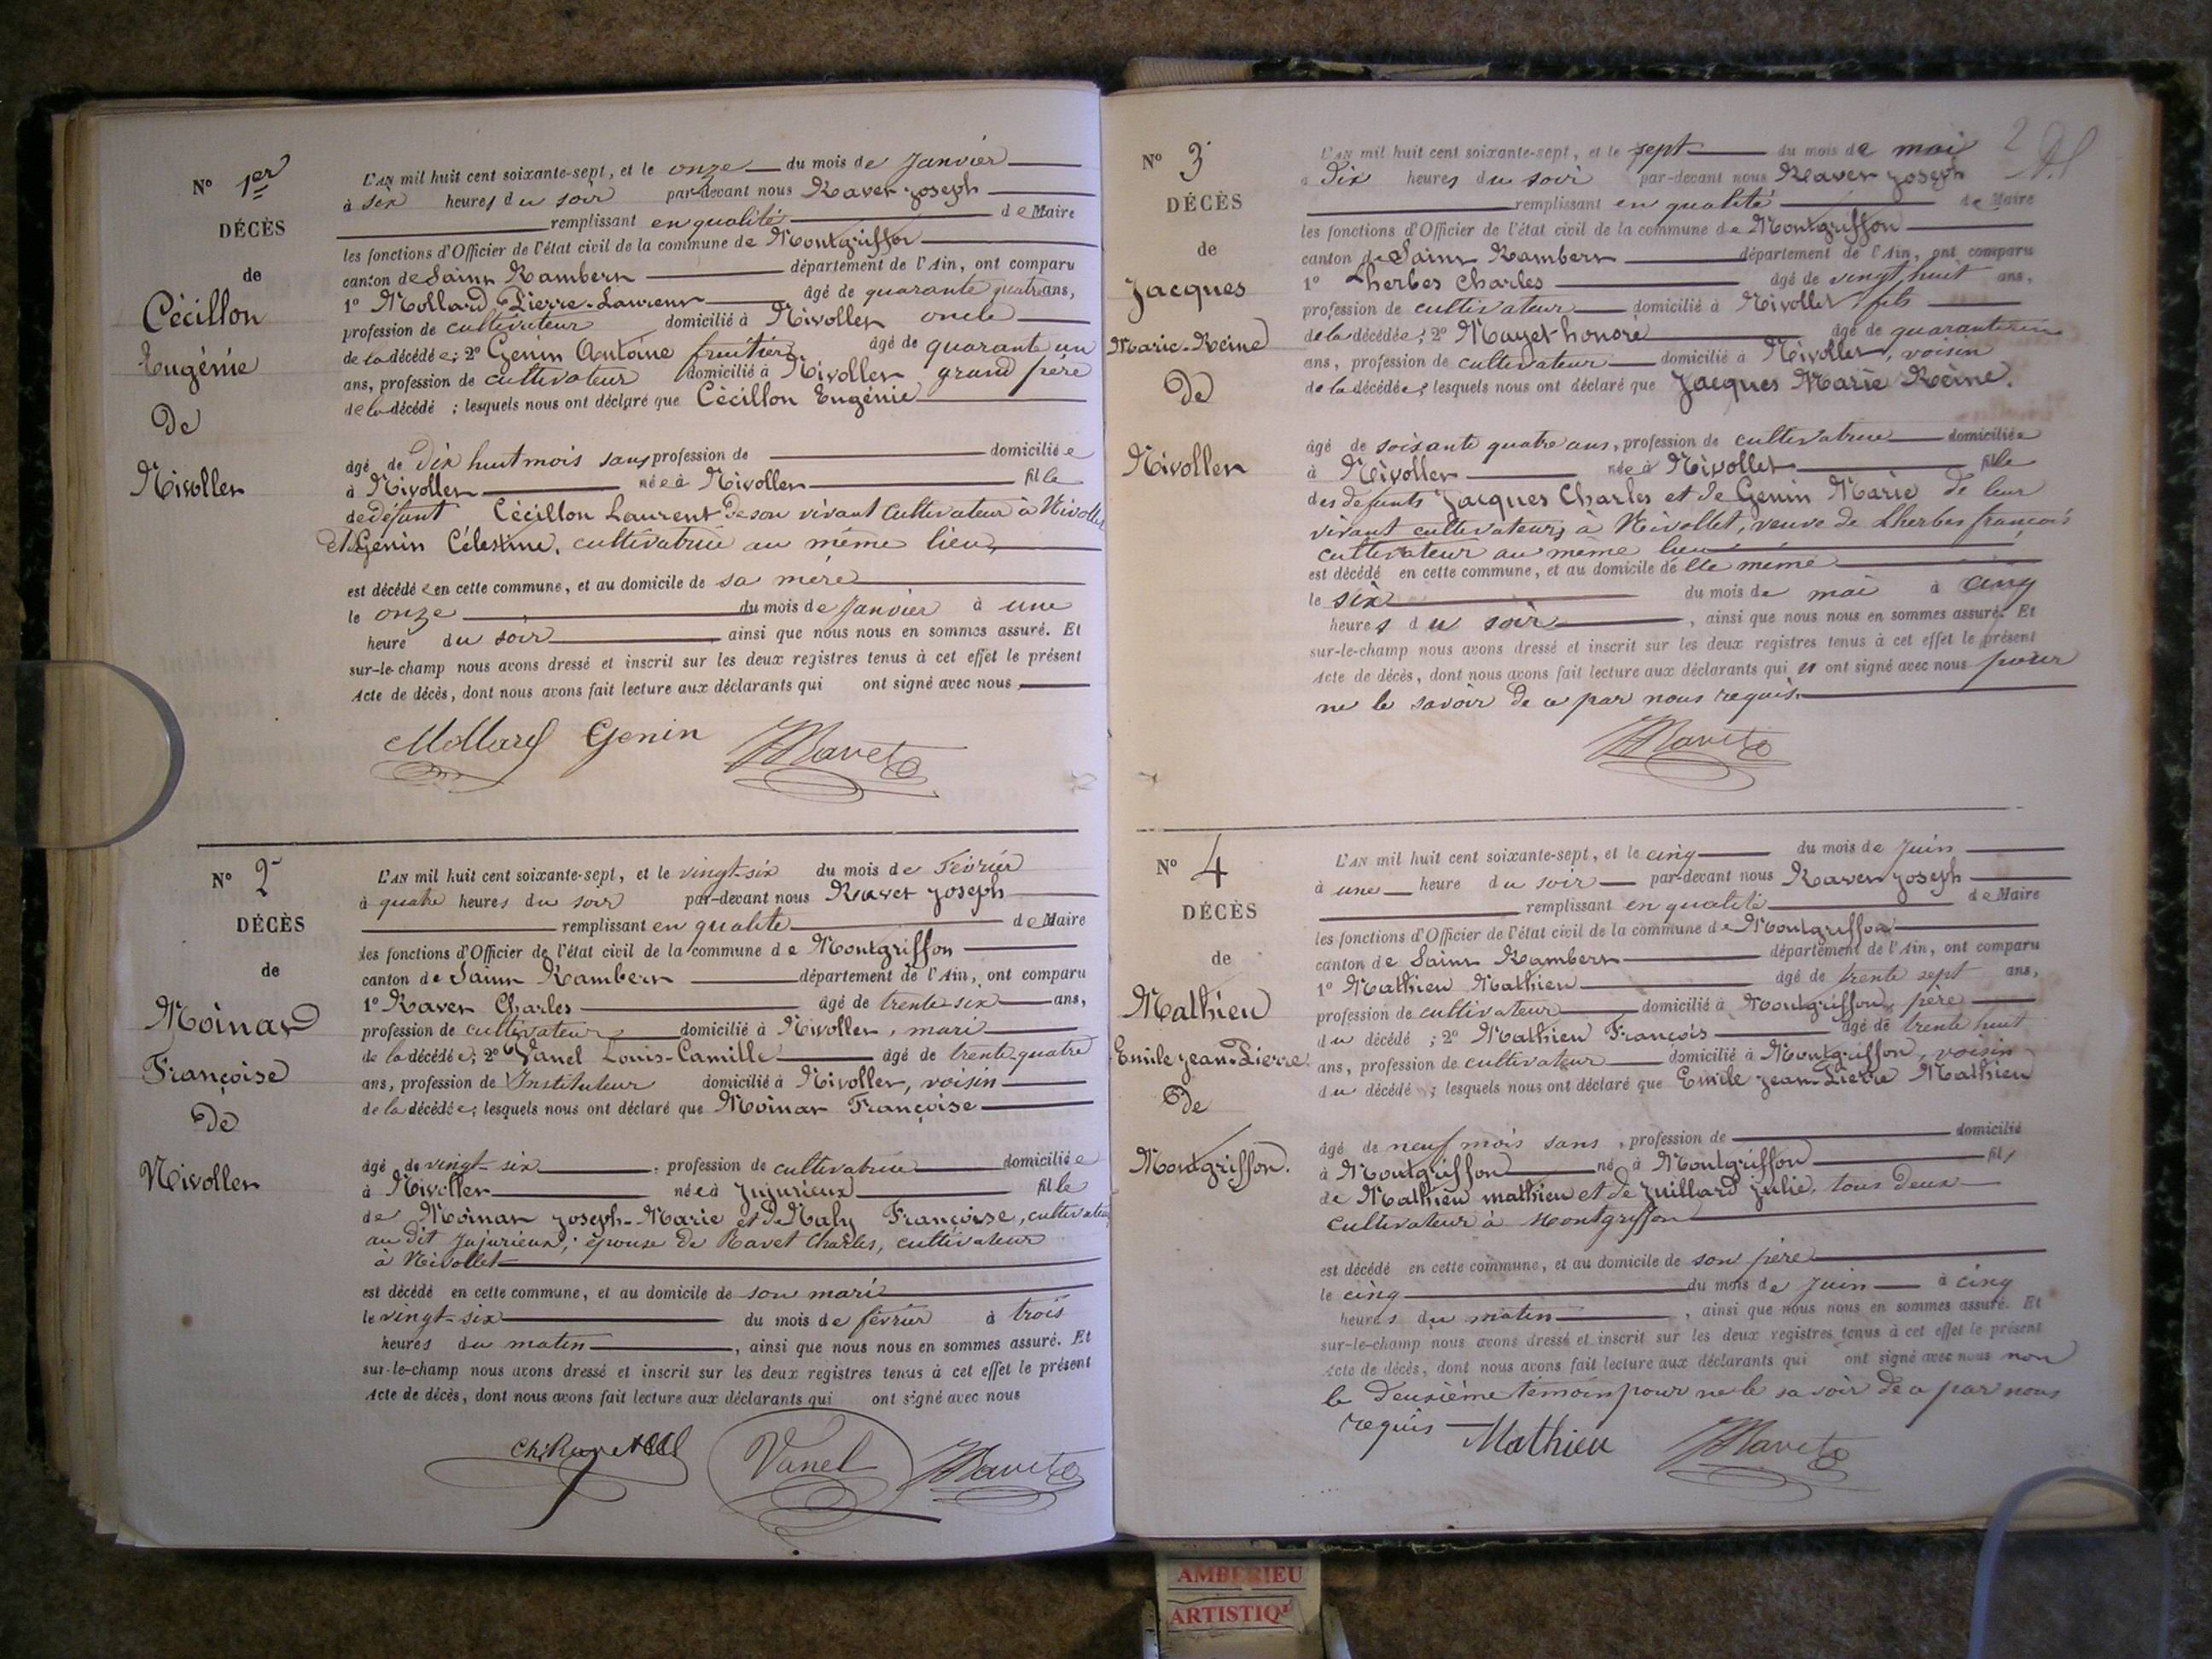 N° 1er
DÉCÈS
de
Cécillon
Eugénie
De
Nivollet
L'AN mil huit cent soixante-sept, et le onze du mois de Janvier
à six heures du soir par-devant nous Ravet Joseph
remplissant en qualité de Maire
les fonctions d'Officier de l'état civil de la commune de Montgriffon
canton de Saint Rambert département de l'Ain, ont comparu
1° Mollard Pierre-Laurent âgé de quarante quatre ans,
profession de cultivateur domicilié à Nivollet oncle
de la décédée; 2° Genin Antoine fruitier âgé de quarante un
ans, profession de cultivateur domicilié à Nivollet grand père
de la décédé ; lesquels nous ont déclaré que Cécillon Eugénie
âgé de Dix huit mois sans profession de domiciliée
à Nivollet née à Nivollet fille
de défunt Cécillon Laurent de son vivant cultivateur à Nivollet
et Genin Célestine, cultivatrice au même lieu,
est décédée en cette commune, et au domicile de sa mère
le onze du mois de Janvier à une
heure du soir , ainsi que nous nous en sommes assuré. Et
sur-le-champ nous avons dressé et inscrit sur les deux registres tenus à cet effet le présent
Acte de décès, dont nous avons fait lecture aux déclarants qui ont signé avec nous
Mollard Genin JRavet
N° 2
DÉCÈS
de
Moinat
Françoise
De
Nivollet
L'AN mil huit cent soixante-sept, et le vingt-six du mois de Février
à quatre heures du soir par-devant nous Ravet Joseph
remplissant en qualité de Maire
les fonctions d'Officier de l'état civil de la commune de Montgriffon
canton de Saint Rambert département de l'Ain, ont comparu
1° Ravet Charles âgé de trente-six ans,
profession de cultivateur domicilié à Nivollet, mari
de la décédée; 2° Vanel Louis-Camille âgé de trente-quatre
ans, profession de Instituteur domicilié à Nivollet, voisin
de la décédée; lesquels nous ont déclaré que Moinat Françoise
âgé de vingt-six , profession de cultivatrice domiciliée
à Nivollet née à Jujurieux fille
de Moinat Joseph-Marie et de Maly Françoise, cultivateurs
au dit Jujurieux; épouse de Ravet Charles, cultivateur
à Nivollet
est décédé en cette commune, et au domicile de son mari
le vingt-six du mois de février à trois
heures du matin , ainsi que nous nous en sommes assuré. Et
sur-le-champ nous avons dressé et inscrit sur les deux registres tenus à cet effet le présent
Acte de décès, dont nous avons fait lecture aux déclarants qui ont signé avec nous
Ch. Ravet Vanel JRavet
2
N° 3
DÉCÈS
de
Jacques
Marie-Reine
De
Nivollet
L'AN mil huit cent soixante-sept, et le sept du mois de mai
à Dix heures du soir par-devant nous Ravet Joseph
remplissant en qualité de Maire
les fonctions d'Officier de l'état civil de la commune de Montgriffon
canton de Saint Rambert département de l'Ain, ont comparu
1° Lherbes Charles âgé de vingt huit ans,
profession de cultivateur domicilié à Nivollet fils
de la décédée; 2° Mayet honoré âgé de
ans, profession de cultivateur domicilié à Nivollet, voisin
de la décédée; lesquels nous ont déclaré que Jacques Marie Reine.
âgé de soixante quatre ans, profession de cultivatrice domiciliée
à Nivollet née à Nivollet fille
des défunts Jacques Charles et de Genin Marie de leur
vivant cultivateurs à Nivollet, veuve de Lherbes françois
cultivateur au même lieu
est décédé en cette commune, et au domicile de elle même
le six du mois de mai à cinq
heures du soir , ainsi que nous nous en sommes assuré. Et
sur-le-champ nous avons dressé et inscrit sur les deux registres tenus à cet effet le présent
Acte de décès, dont nous avons fait lecture aux déclarants qui n'ont signé avec nous pour
ne le savoir de ce par nous requis.
JRavet
N° 4
DÉCÈS
de
Mathieu
Emile Jean-Pierre
De
Montgriffon.
L'AN mil huit cent soixante-sept, et le cinq du mois de Juin
à une heure du soir par-devant nous Ravet Joseph
remplissant en qualité de Maire
les fonctions d'Officier de l'état civil de la commune de Montgriffon
canton de Saint Rambert département de l'Ain, ont comparu
1° Mathieu Mathieu âgé de trente sept ans,
profession de cultivateur domicilié à Montgriffon, père
du décédé ; 2° Mathieu François âgé de trente huit
ans, profession de cultivateur domicilié à Montgriffon, voisin
du décédé ; lesquels nous ont déclaré que Emile Jean-Pierre Mathieu
âgé de neuf mois sans , profession de domicilié
à Montgriffon né à Montgriffon fils
de Mathieu mathieu et de Juillard Julie, tous deux
cultivateur à Montgriffon
est décédé en cette commune, et au domicile de son père
le cinq du mois de Juin à cinq
heures du matin , ainsi que nous nous en sommes assuré. Et
sur-le-champ nous avons dressé et inscrit sur les deux registres tenus à cet effet le présent
Acte de décès, dont nous avons fait lecture aux déclarants qui ont signé avec nous non
le Deuxième témoin pour ne le savoir de ce par nous
requis Mathieu JRavet
AMBERIEU
ARTISTIQ